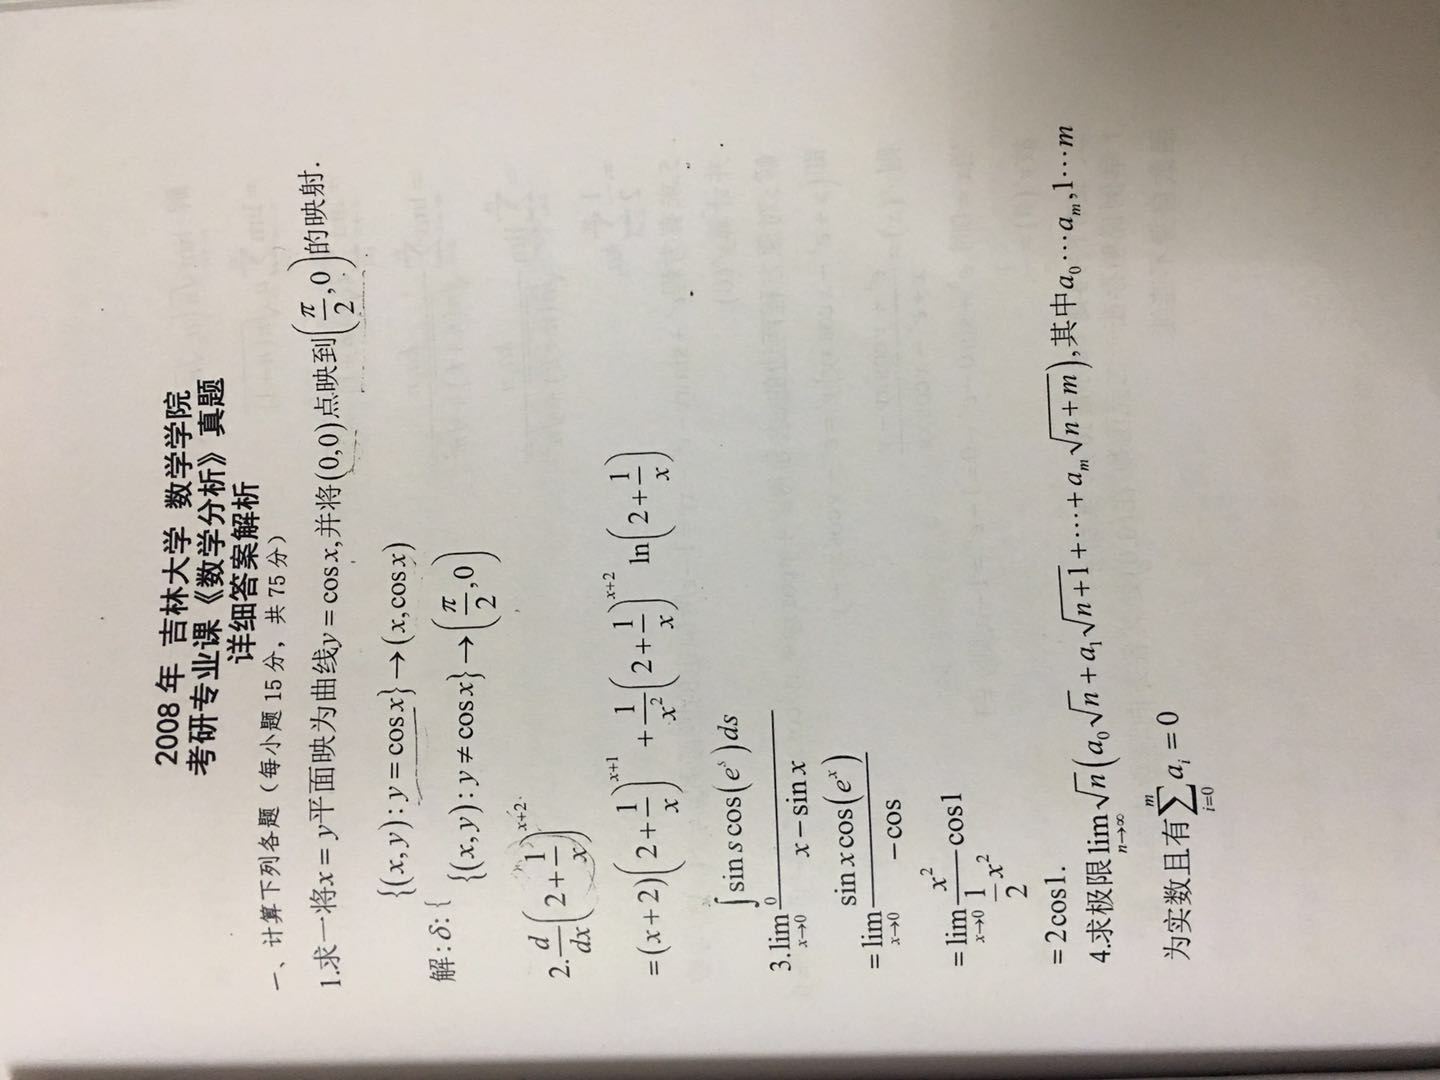 2008 年 吉林大学 数学学院
考研专业课《数学分析》真题
详细答案解析
一、计算下列各题（每小题 15 分，共 75 分）
1.求一将x = y平面映为曲线y = cos x,并将(0,0)点映到(π/2,0)的映射.
解:δ:{ {(x,y):y = cos x}→(x,cos x)
{(x,y):y ≠ cos x}→(π/2,0)
2. d/dx (2+1/x)^{x+2}
=(x+2)(2+1/x)^{x+1} + 1/x² (2+1/x)^{x+2} ln(2+1/x)
3. lim_{x→0} ∫_0 sin s cos(e^s)ds / (x − sin x)
= lim_{x→0} sin x cos(e^x) / −cos
= lim_{x→0} x² / (1/2 x²) cos1
= 2cos1.
4.求极限 lim_{n→∞} √n(a₀√n + a₁√(n+1) + ⋯ + a_m√(n+m)),其中a₀⋯a_m,1⋯m
为实数且有 ∑_{i=0}^{m} a_i = 0